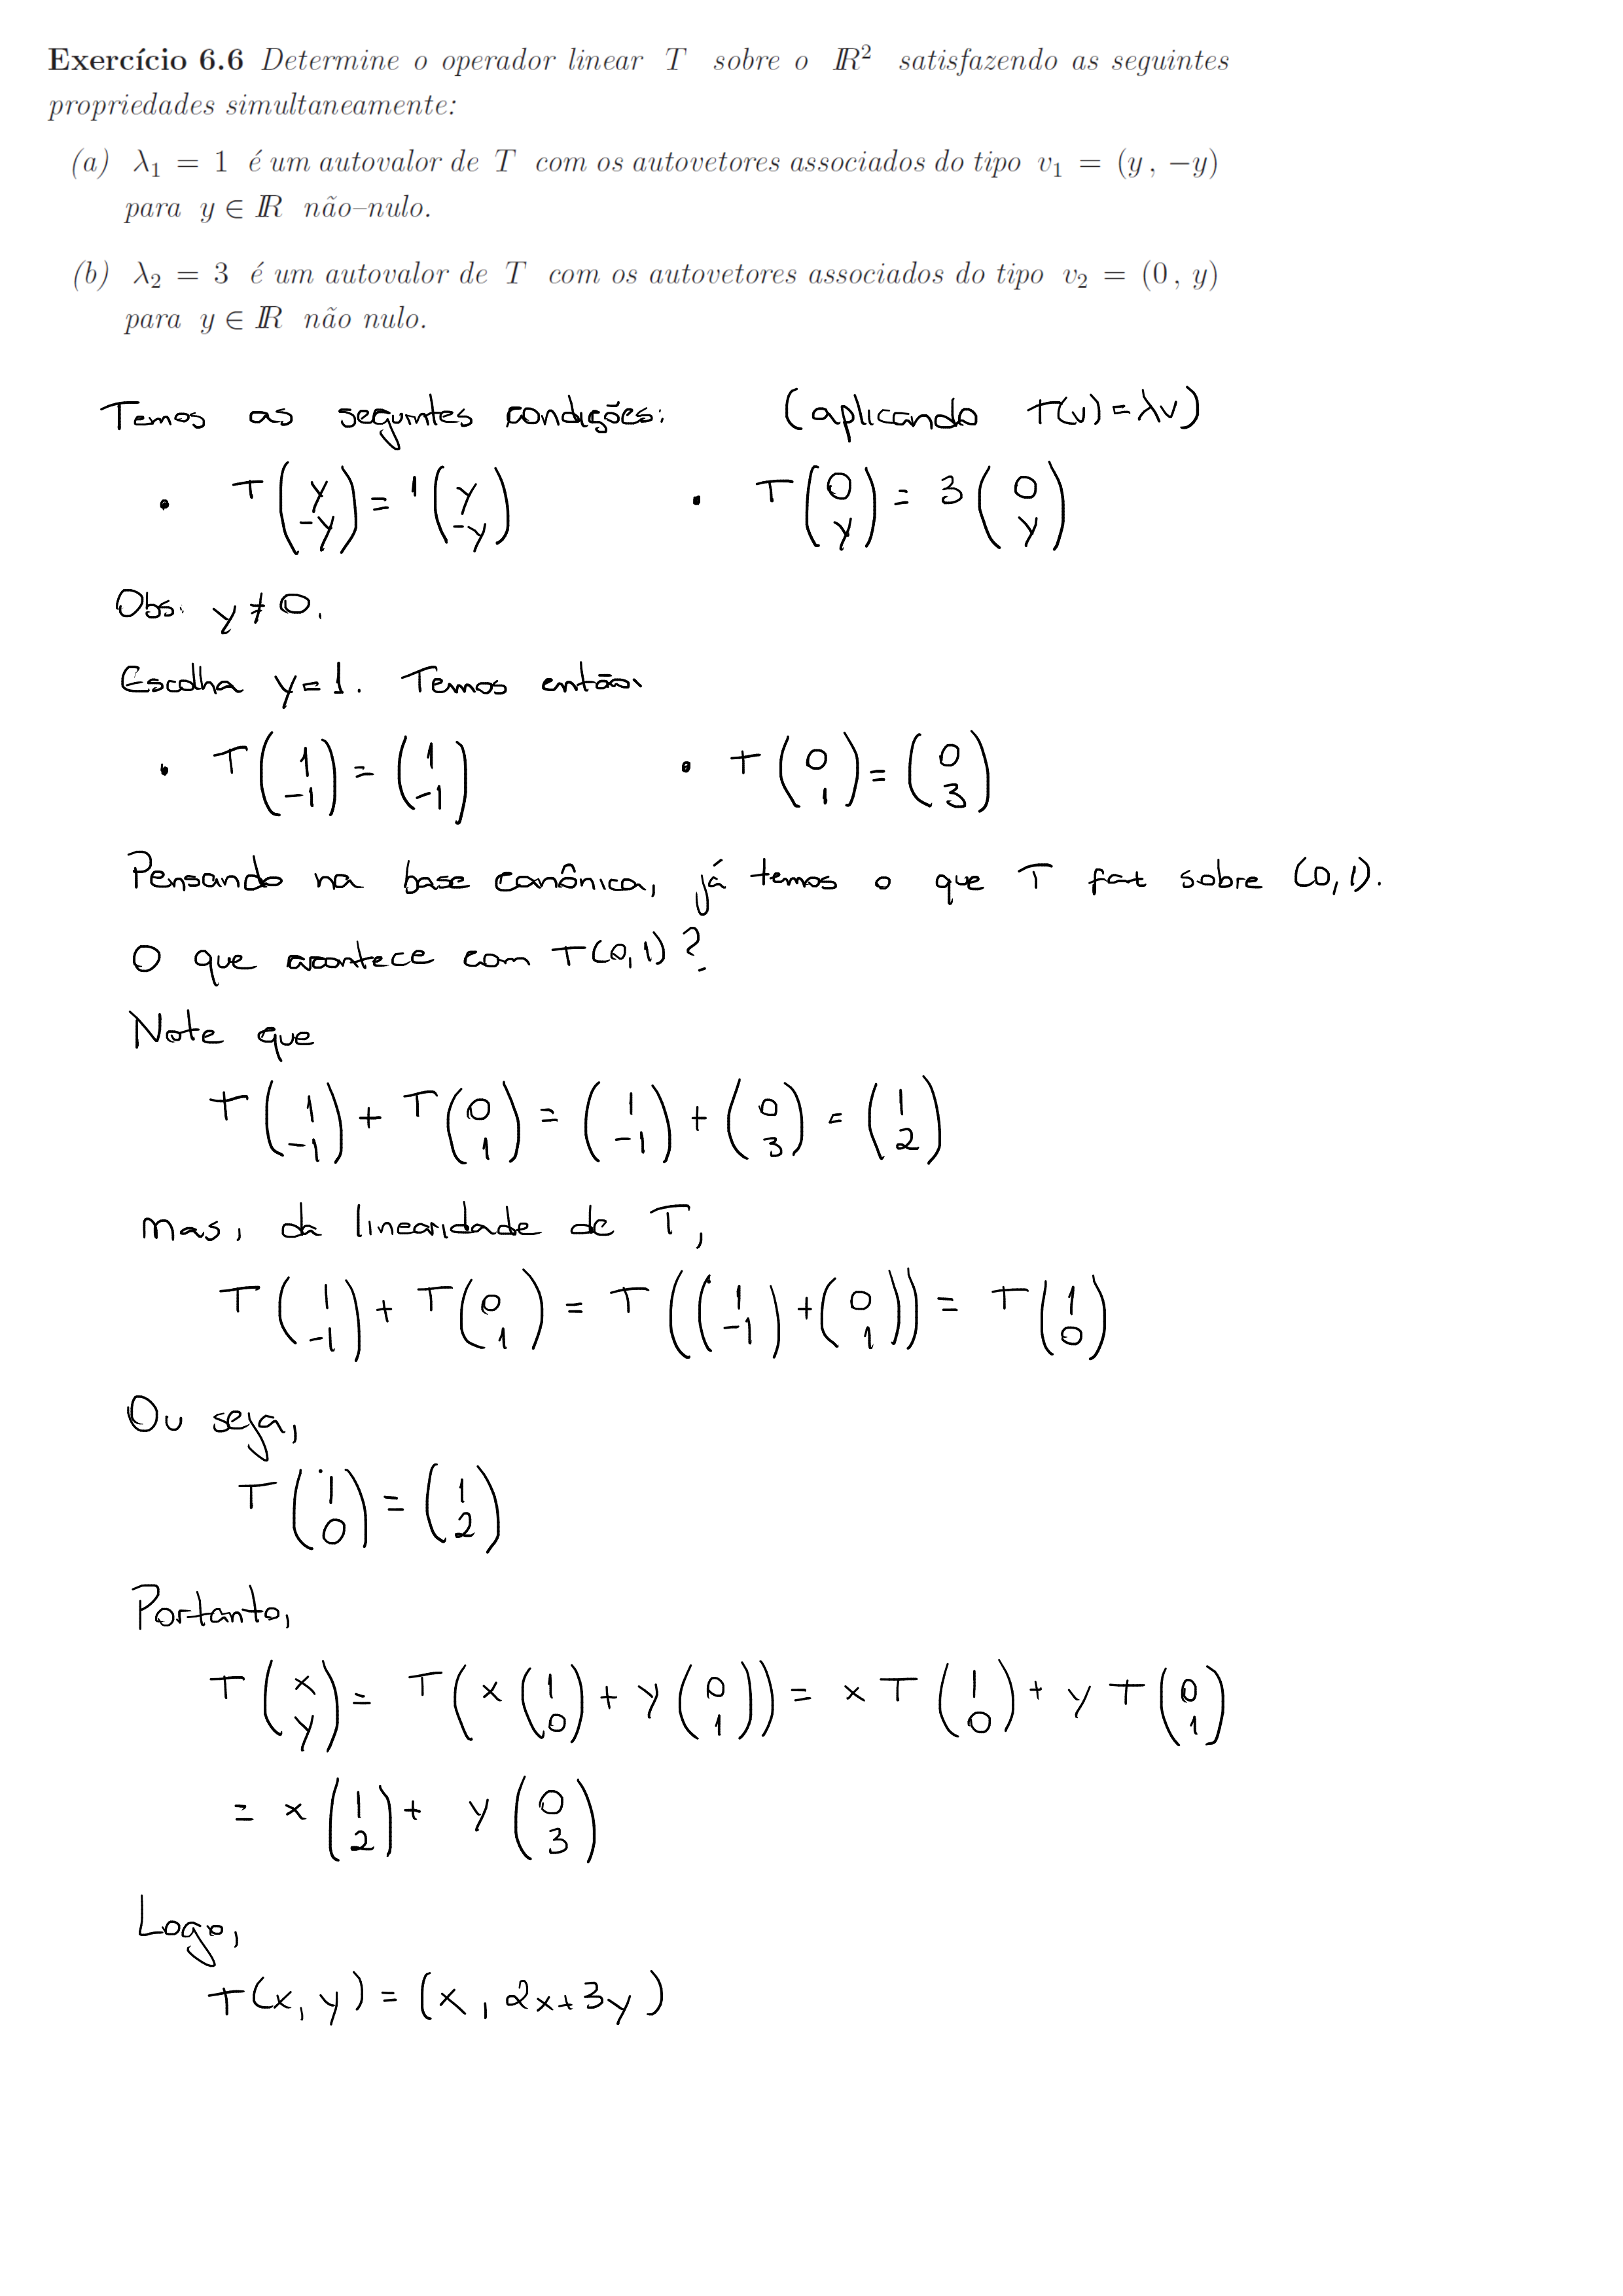 Exercício 6.6 Determine o operador linear T sobre o ℝ² satisfazendo as seguintes
propriedades simultaneamente:
(a) λ₁ = 1 é um autovalor de T com os autovetores associados do tipo v₁ = (y, −y)
para y ∈ ℝ não–nulo.
(b) λ₂ = 3 é um autovalor de T com os autovetores associados do tipo v₂ = (0, y)
para y ∈ ℝ não nulo.
Temos as seguintes condições: (aplicando T(v) = λv)
• T(y; -y) = 1(y; -y) • T(0; y) = 3(0; y)
Obs: y ≠ 0.
Escolha y = 1. Temos então:
• T(1; -1) = (1; -1) • T(0; 1) = (0; 3)
Pensando na base canônica, já temos o que T fat sobre (0,1).
O que acontece com T(0,1)?
Note que
T(1; -1) + T(0; 1) = (1; -1) + (0; 3) = (1; 2)
mas, da linearidade de T,
T(1; -1) + T(0; 1) = T((1; -1) + (0; 1)) = T(1; 0)
Ou seja,
T(1; 0) = (1; 2)
Portanto,
T(x; y) = T(x(1; 0) + y(0; 1)) = xT(1; 0) + yT(0; 1)
= x(1; 2) + y(0; 3)
Logo,
T(x, y) = (x, 2x+3y)